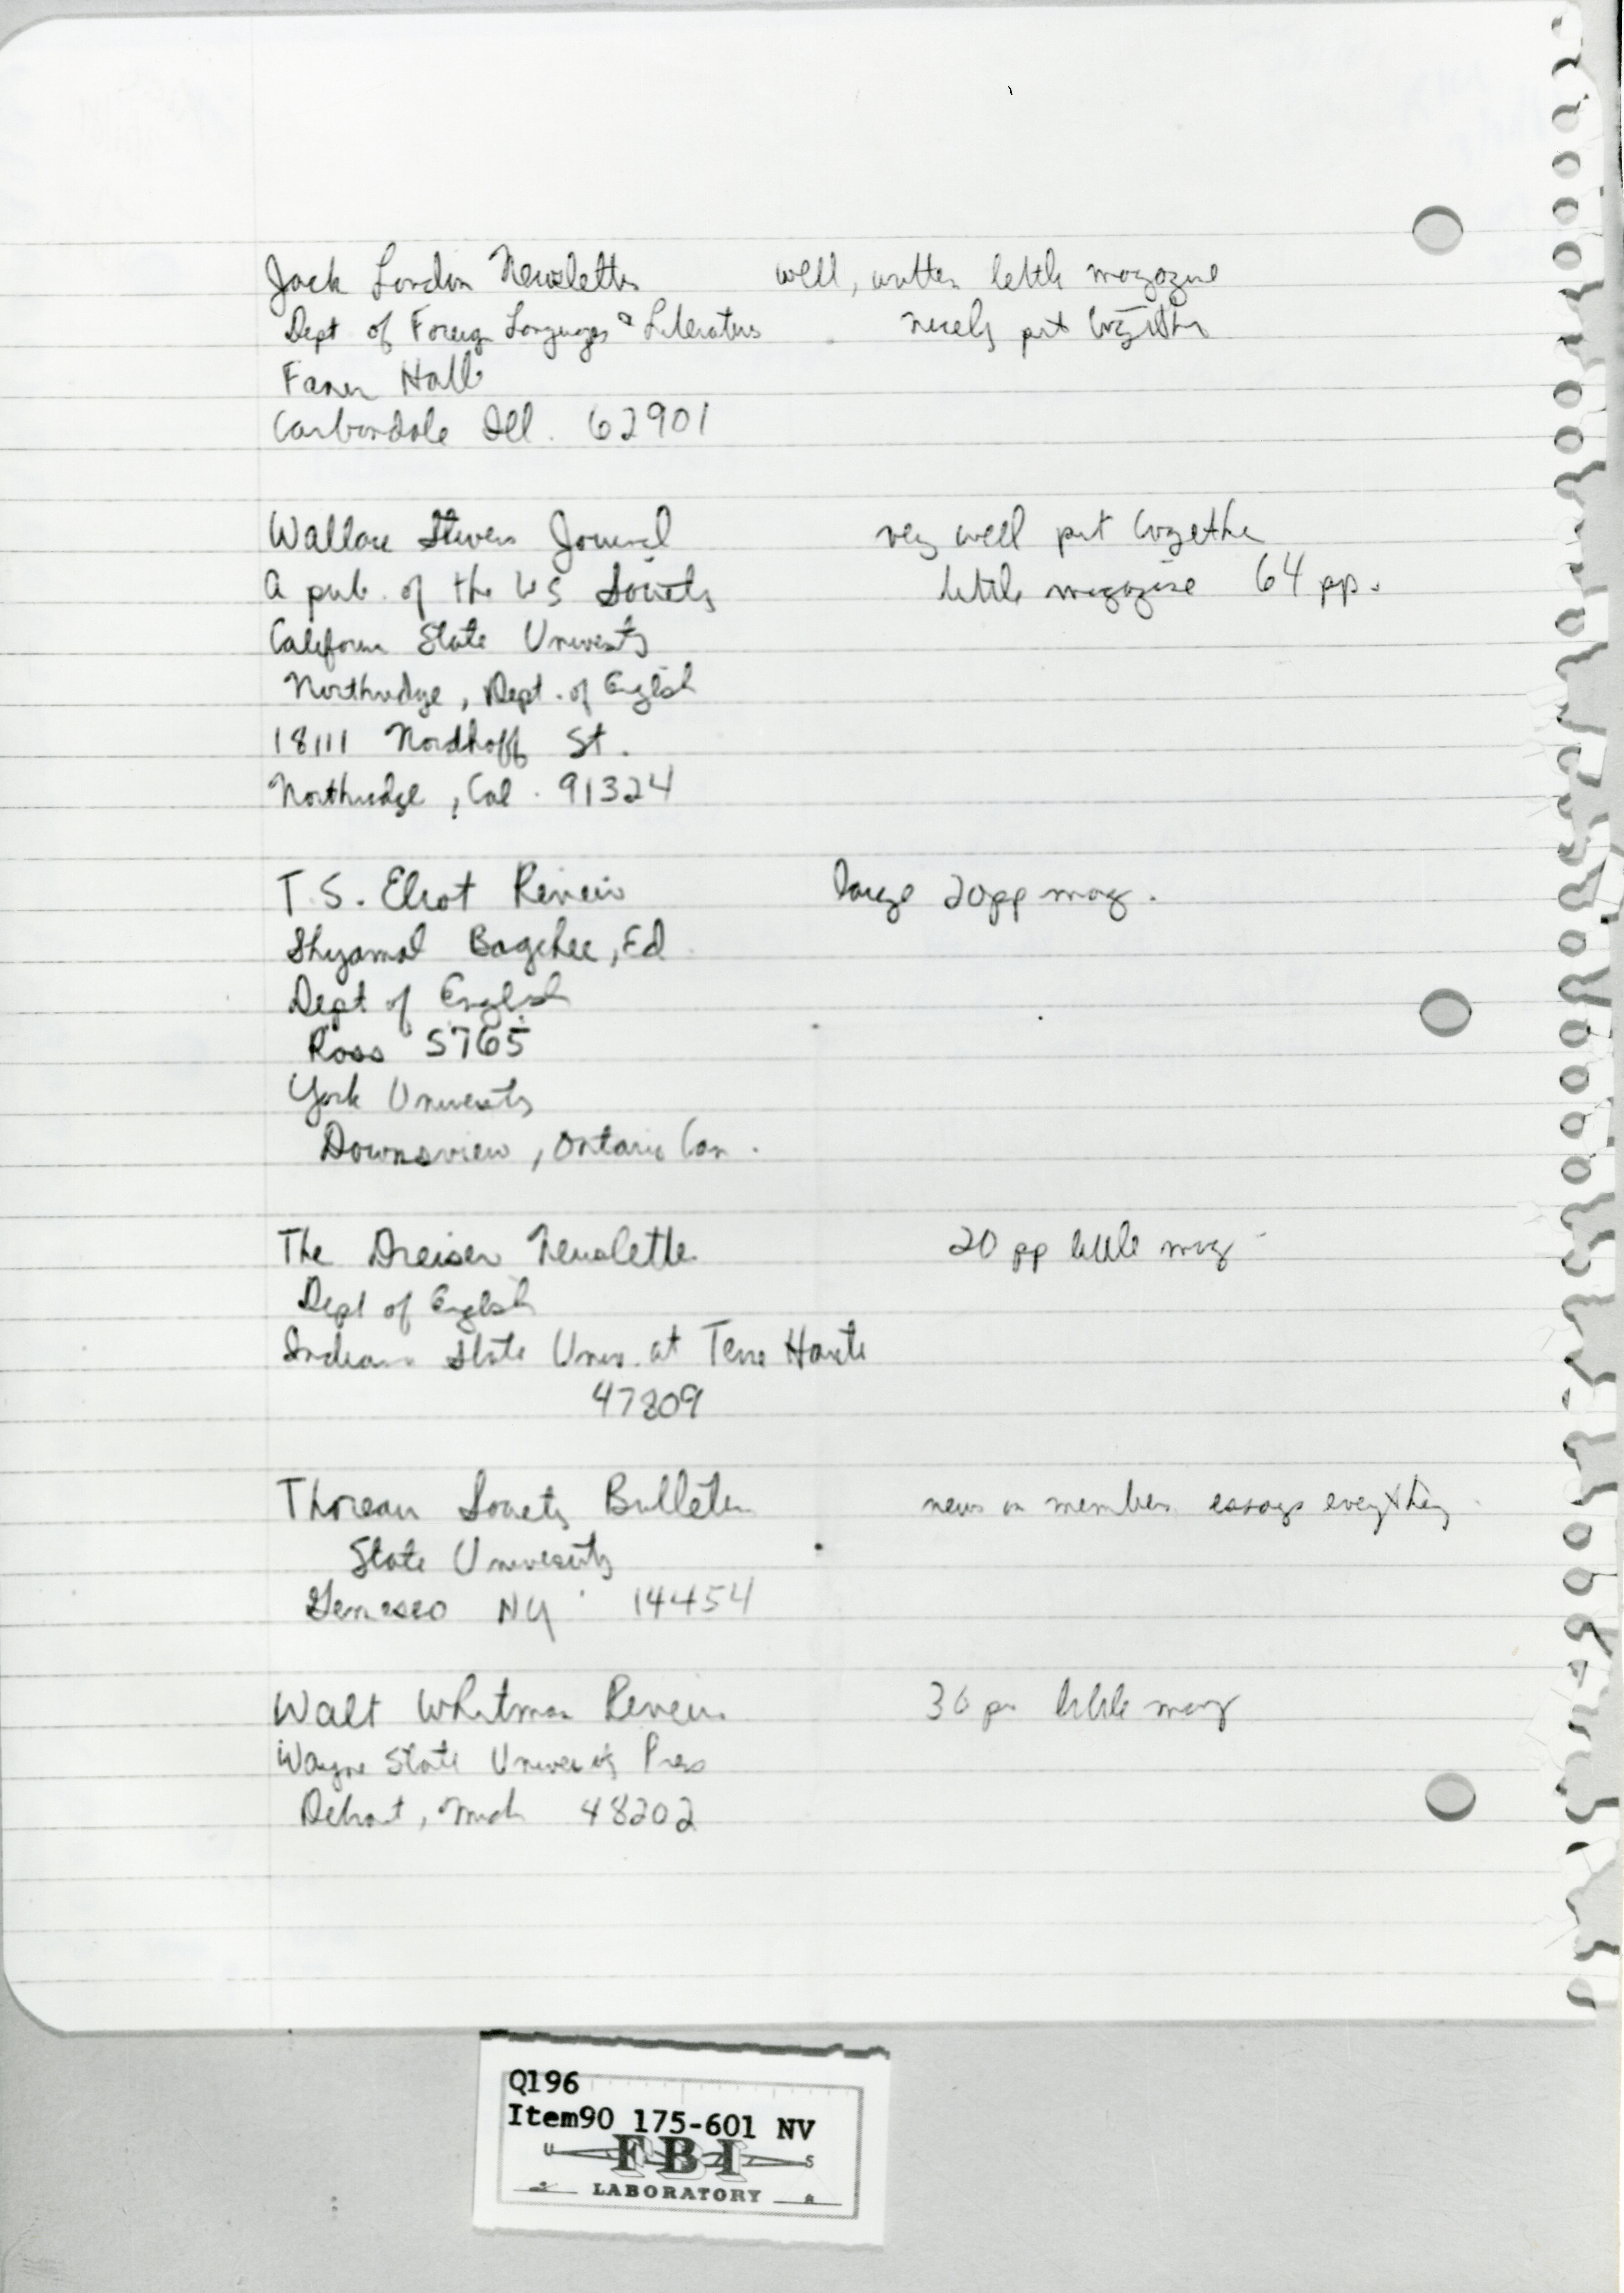 Jack London Newsletter well, written little magazine
Dept of Foreign Languages & Literatures nicely put together
Faner Hall
Carbondale Ill. 62901
Wallace Stevens Journal very well put together
A pub. of the WS Society little magazine 64 pp.
California State University
Northridge, Dept. of English
18111 Nordhoff St.
Northridge, Cal. 91324
T.S. Eliot Review large 20pp mag.
Shyamal Bagchee, Ed
Dept of English
Ross S765
York University
Downsview, Ontario Can.
The Dreiser Newsletter 20 pp little mag
Dept of English
Indiana State Univ. at Terre Haute
47809
Thoreau Society Bulletin news on members essays everything
State University
Geneseo NY 14454
Walt Whitman Review 36 pp little mag
Wayne State University Press
Detroit, Mich 48202
Q196
Item90 175-601 NV
U FBI S
LABORATORY